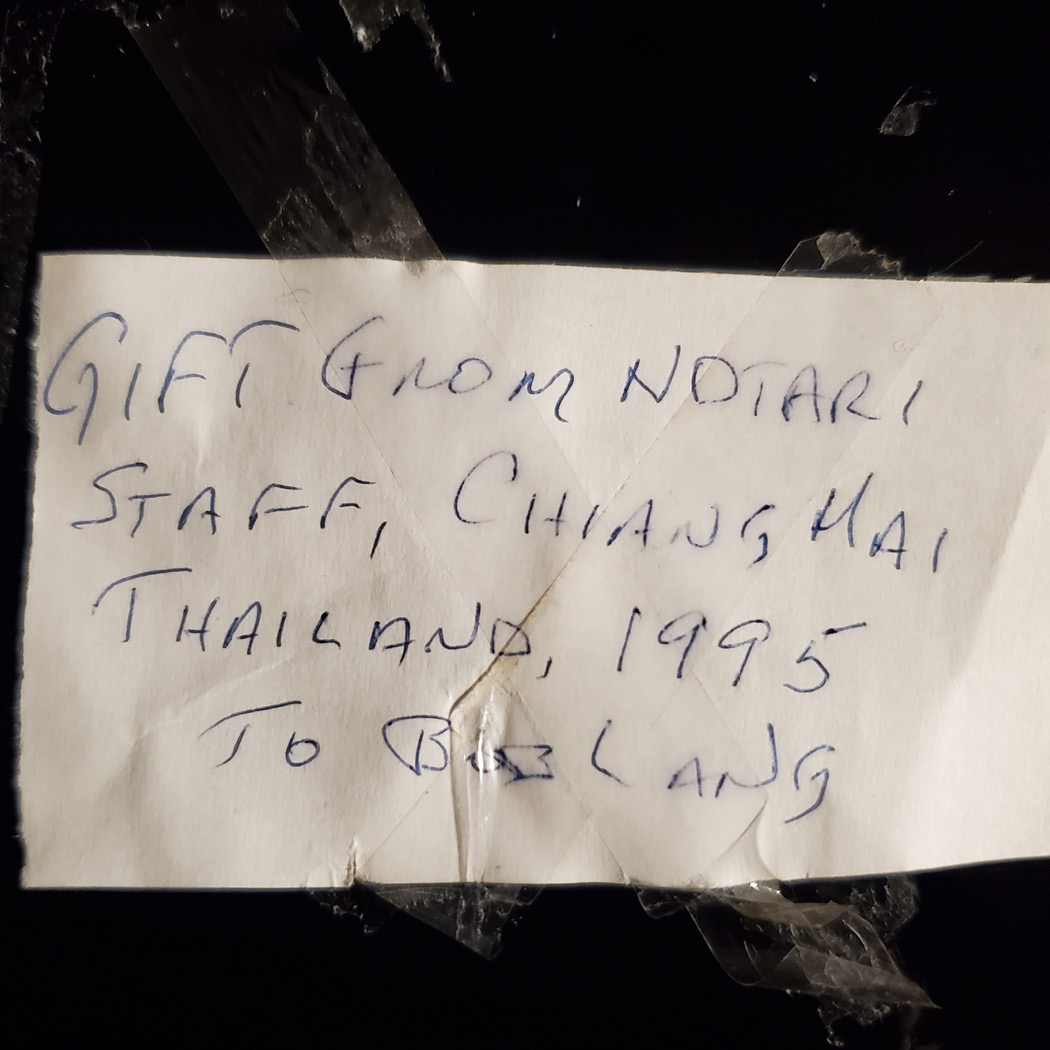 GIFT FROM NOTARI
STAFF, CHIANG MAI
THAILAND, 1995
TO BOB LANG